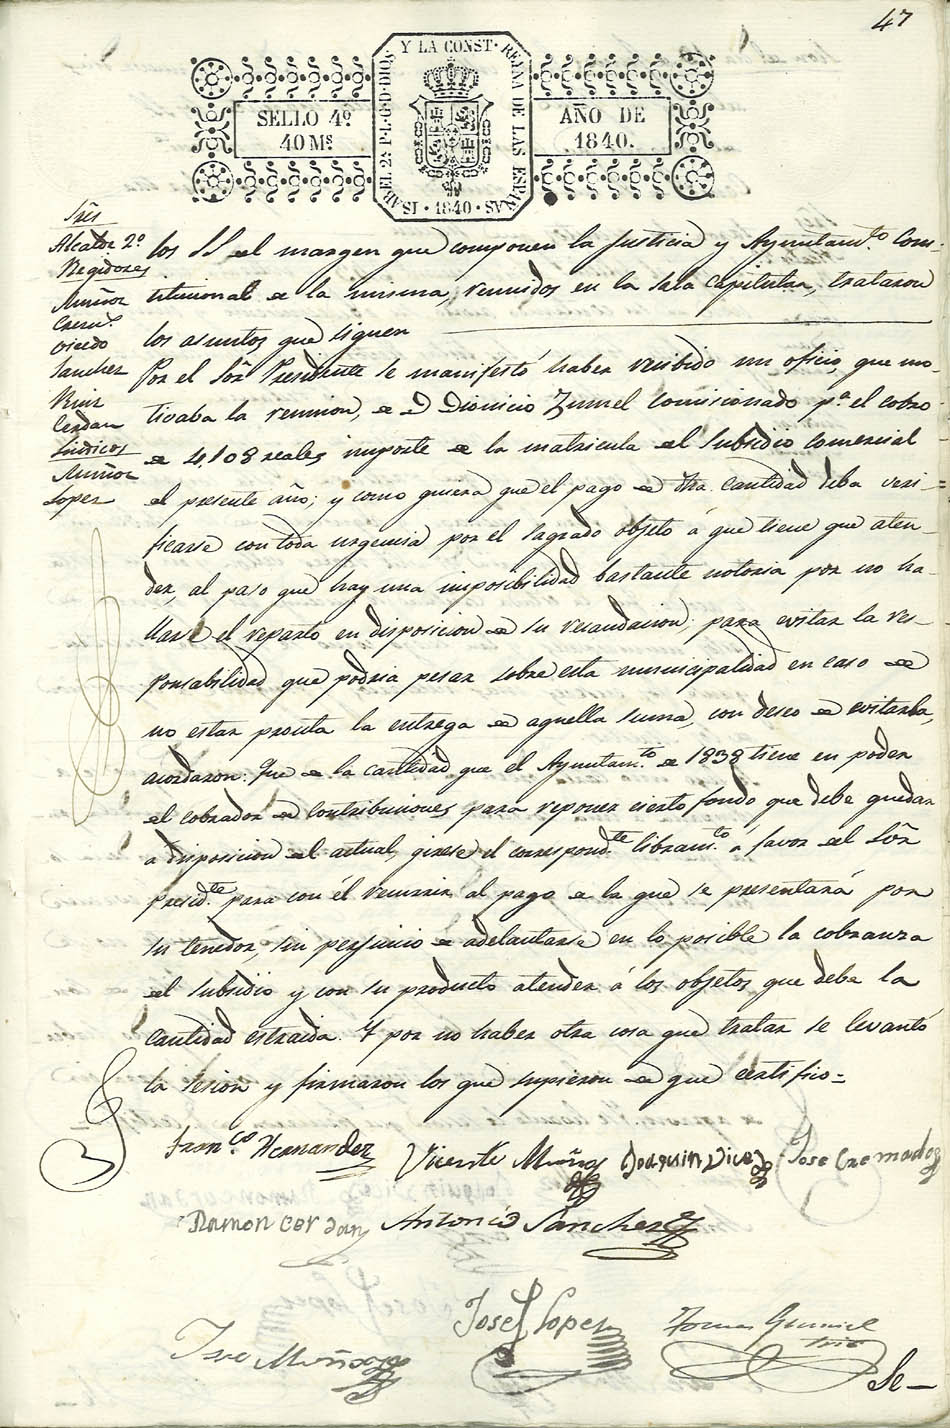 47
SELLO 4º
40 Mˢ
ISABEL 2ª P.L.G.D.DIOS Y LA CONST. REINA DE LAS ESPAÑAS
· 1840 ·
AÑO DE
1840.
Sres
Alcalde 2º
Regidores
Muñoz
Crem.s
Vicedo
Sanchez
Ruiz
Cerdan
Sindicos
Muñoz
Lopez
los SS. del margen que componen la Justicia y Ayuntam.to Cons-
titucional de la misma, reunidos en la Sala Capitular, trataron
los asuntos que siguen
Por el Sõr Presidente se manifestó haber recibido un oficio, que mo-
tivaba la reunion, de D. Dionicio Zumel Comisionado pª el cobro
de 4,108 reales importe de la matricula del Subsidio Comercial
del presente año; y como quiera que el pago de dha. cantidad deba veri=
ficarse con toda urgencia por el sagrado objeto á que tiene que aten-
der, al paso que hay una imposibilidad bastante notoria por no ha-
llarse el reparto en disposicion de su recaudacion; para evitar la res-
ponsabilidad que podria pesar sobre esta municipalidad en caso de
no estar pronta la entrega de aquella suma, con deseo de evitarla,
acordaron: Que de la cantidad que el Ayuntam.to de 1838 tiene en poder
del cobrador de Contribuciones para reponer cierto fondo que debe quedar
a disposicion del actual, girese el correspond.te libram.to á favor del Sõr
presid.te para con él reunir al pago de la que se presentará por
su tenedor, sin perjuicio de adelantarse en lo posible la cobranza
del subsidio y con su producto atender á los objetos que deba la
cantidad estraida. Y por no haber otra cosa que tratar se levantó
la sesion y firmaron los que supieron de que certifico=
Fran.co Hernandez Vicente Muñoz Joaquin Vicedo Jose Cremades
Ramon cerdan Antonio Sanchez
Jose Muñoz Josef Lopez Tomas
Srio
Se—